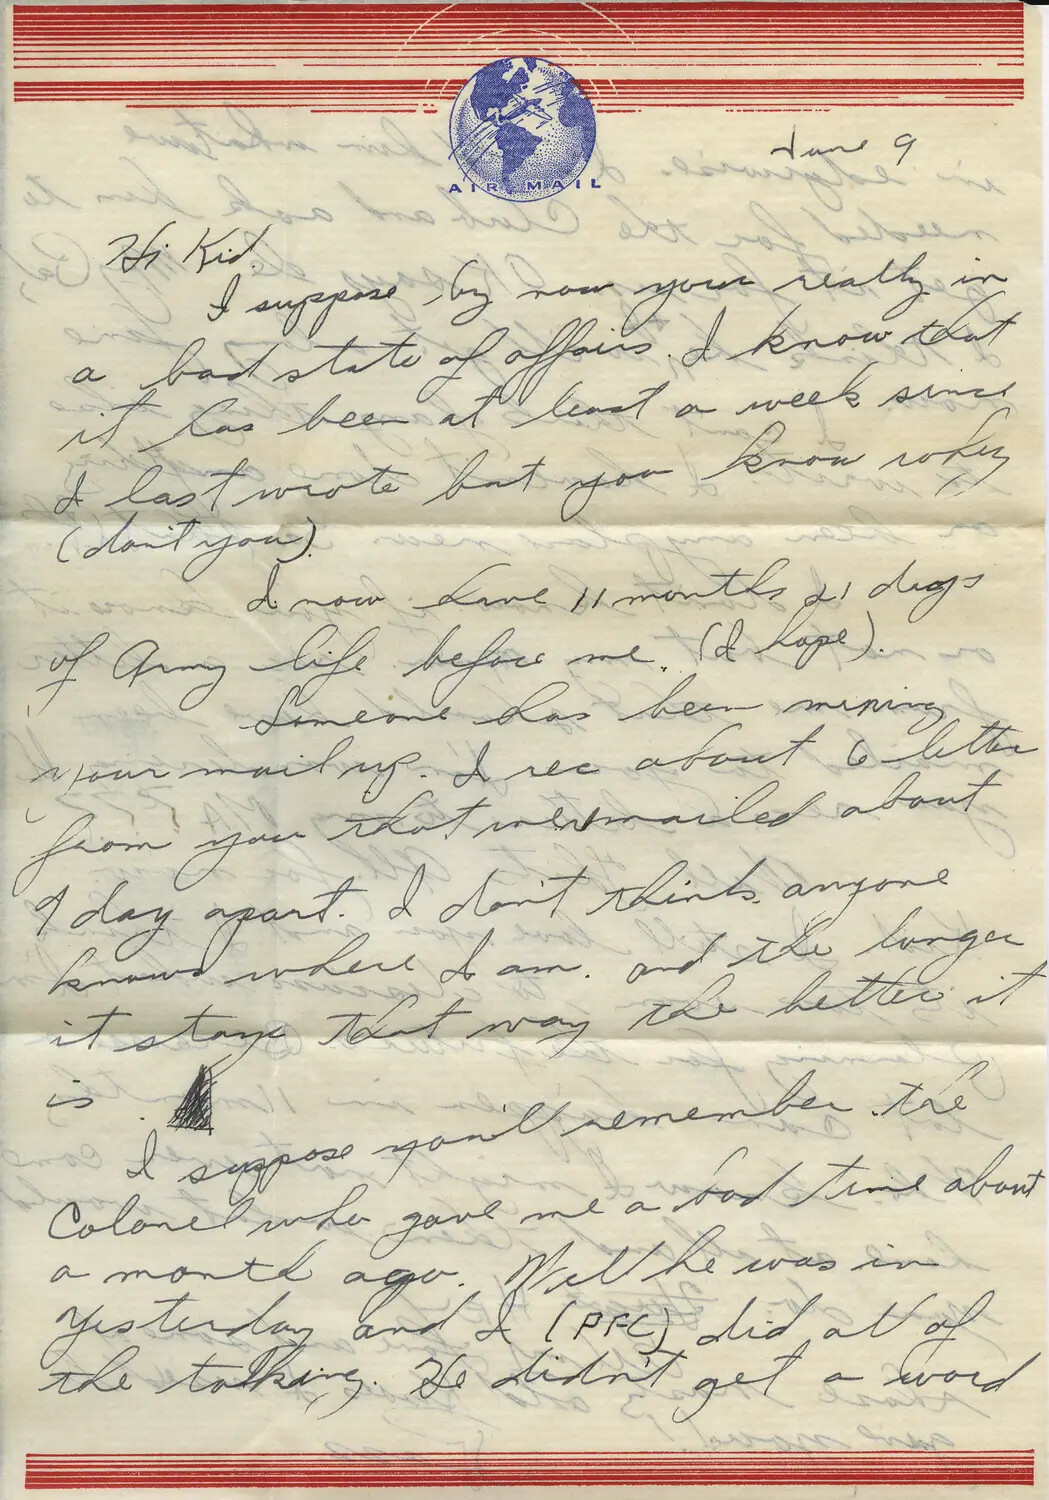 AIR MAIL
June 9
Hi Kid.
I suppose by now your really in
a bad state of affairs. I know that
it has been at least a week since
I last wrote but you know why
(don't you).
I now have 11 months 21 days
of Army life before me. (I hope).
Someone has been mixing
your mail up. I rec about 6 letter
from you that were mailed about
1 day apart. I don't think anyone
knows where I am. and the longer
it stays that way the better it
is.
I suppose you'll remember the
Colonel who gave me a bad time about
a month ago. Well he was in
yesterday and I (PFC) did all of
the talking. He didn't get a word